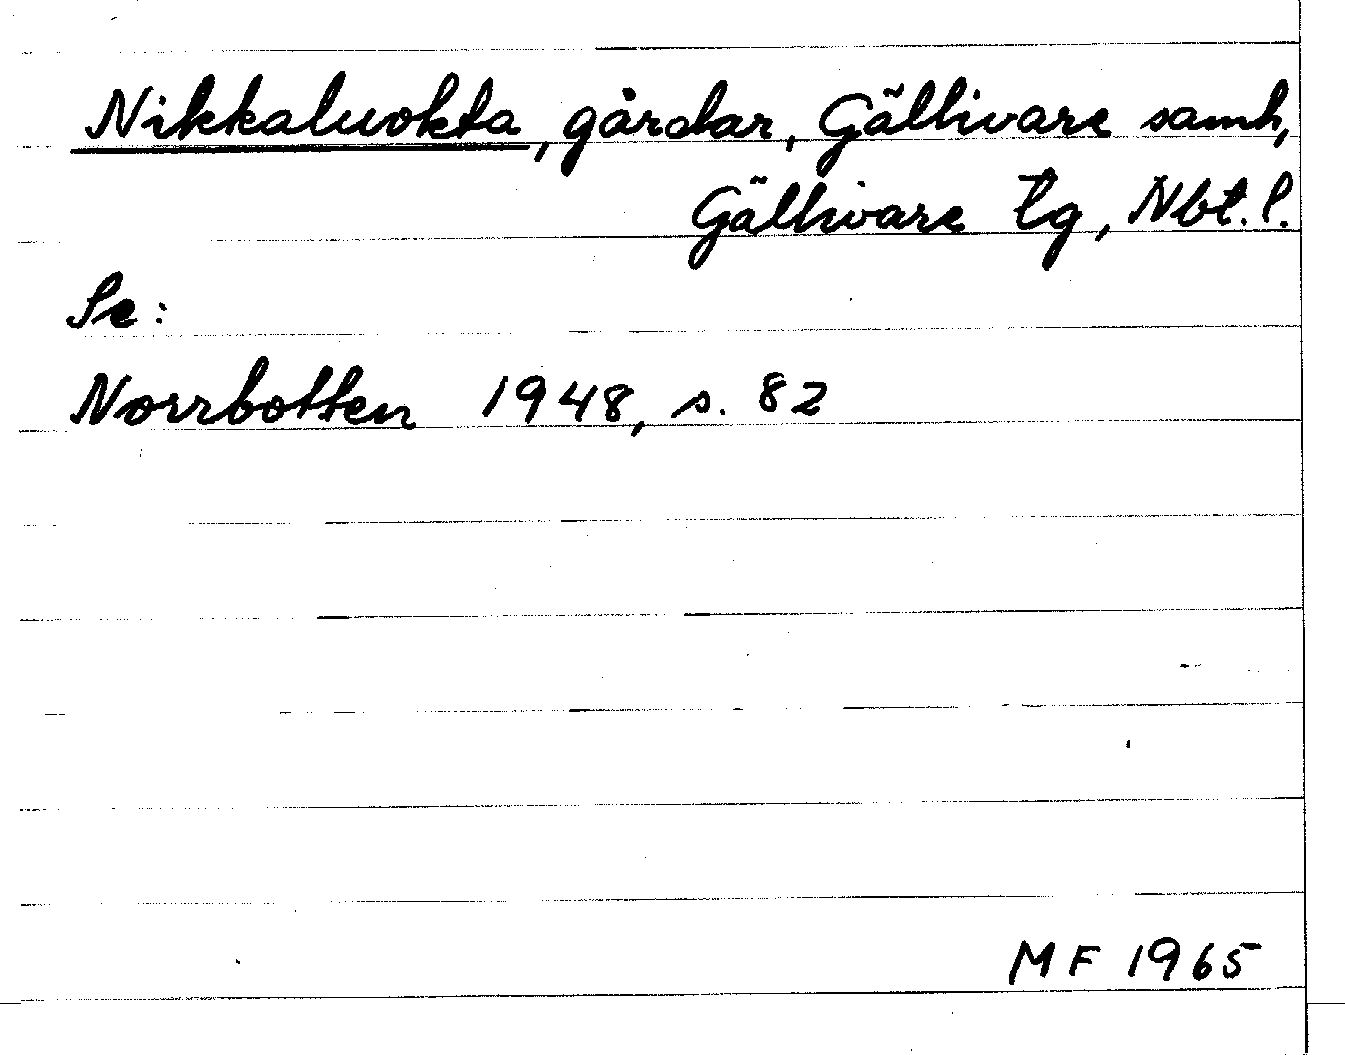 Nikkaluokta, gårdar, Gällivare samh,
Gällivare tg, Nbt. l.
Se:
Norrbotten 1948, s. 82
MF 1965